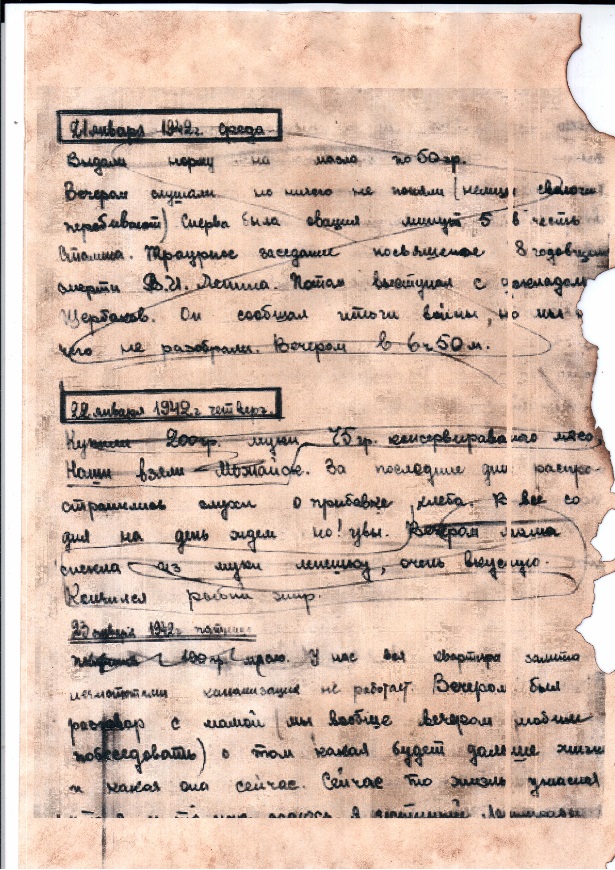 21 января 1942 г. среда
Выдали норму на масло по 50 гр.
Вечером слушали но ничего не поняли (немцы сволочи
перебивают) Сперва была овация минут 5 в честь
Сталина. Траурное заседание посвященое 8 годовщине
смерти В.И. Ленина. Потом выступил с докладом
Щербаков. Он сообщал итоги войны, но мы
чего не разобрали. Вечером в 6 ч 50 м.
22 января 1942 г четверг.
200 гр. муки, 75 гр. консервираваного мяса,
Наши взяли Можайск. За последние дни распро-
странились слухи о прибавке хлеба. И все со
дня на день ждем но! увы. Вечером мама
спекла из муки лепешку, очень вкусную.
Кончился рыбий жир.
23 января 1942 г. пятница
100 гр. мясо. У нас вся квартира залита
нечистотами канализация не работает. Вечером был
разговор с мамой (мы вообще вечером любим
побеседовать) о том какая будет дальше жизнь
и какая она сейчас. Сейчас то жизнь ужасная